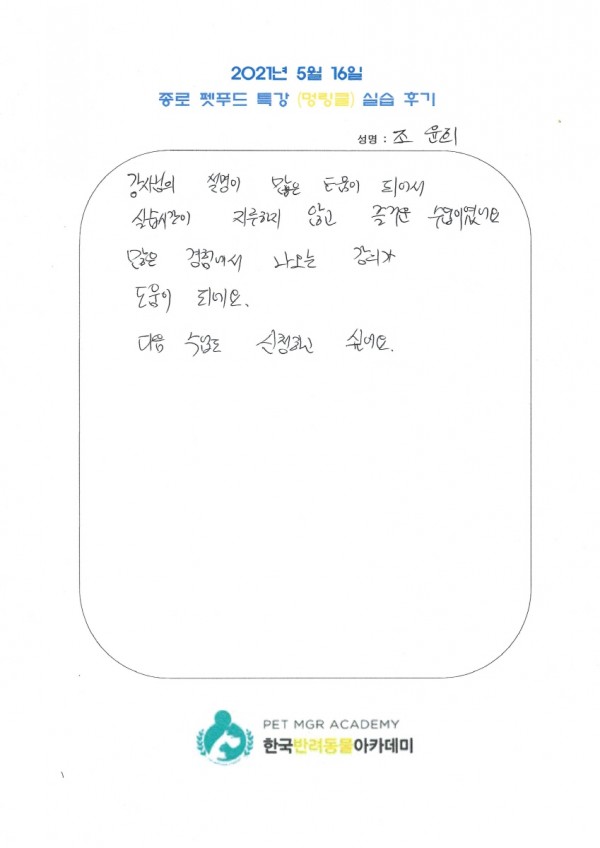 2021년 5월 16일
종로 펫푸드 특강 (멍링클) 실습 후기
성명 : 조 윤희
강사님의 설명이 많은 도움이 되어서
실습시간이 지루하지 않고 즐거운 수업이였네요
많은 경험에서 나오는 강의가
도움이 되네요.
다음 수업도 신청하고 싶어요.
PET MGR ACADEMY
한국반려동물아카데미